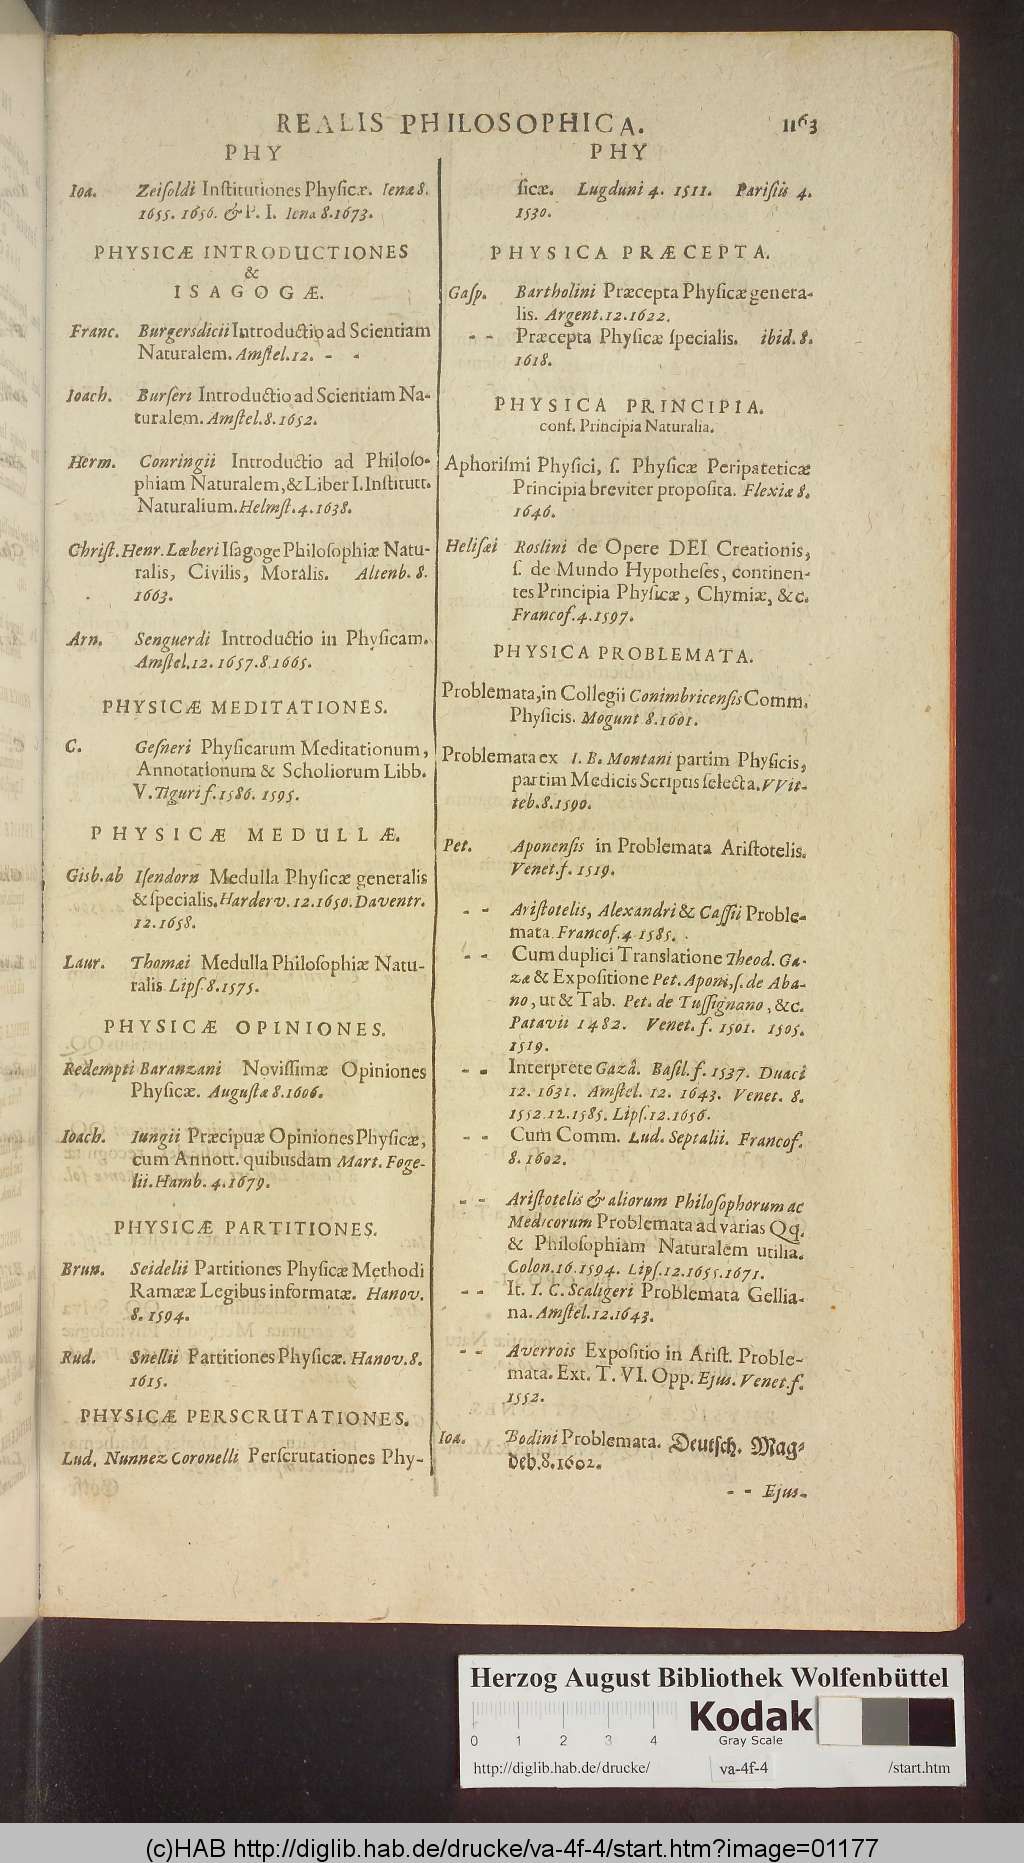 REALIS PHILOSOPHICA. 1163
PHY
Ioa. Zeiſoldi Inſtitutiones Phyſicæ. Ienæ 8.
1655. 1656. & P. I. Iena 8. 1673.
PHYSICÆ INTRODUCTIONES
&
ISAGOGÆ.
Franc. Burgersdicii Introductio ad Scientiam
Naturalem. Amſtel. 12. - -
Ioach. Burſeri Introductio ad Scientiam Na-
turalem. Amſtel. 8. 1652.
Herm. Conringii Introductio ad Philoſo-
phiam Naturalem, & Liber I. Inſtitutt.
Naturalium. Helmſt. 4. 1638.
Chriſt. Henr. Læberi Iſagoge Philoſophiæ Natu-
ralis, Civilis, Moralis. Altenb. 8.
1663.
Arn. Senguerdi Introductio in Phyſicam.
Amſtel. 12. 1657. 8. 1665.
PHYSICÆ MEDITATIONES.
C. Geſneri Phyſicarum Meditationum,
Annotationum & Scholiorum Libb.
V. Tiguri f. 1586. 1595.
PHYSICÆ MEDULLÆ.
Gisb. ab Iſendorn Medulla Phyſicæ generalis
& ſpecialis. Harderv. 12. 1650. Daventr.
12. 1658.
Laur. Thomæi Medulla Philoſophiæ Natu-
ralis Lipſ. 8. 1575.
PHYSICÆ OPINIONES.
Redempti Baranzani Noviſſimæ Opiniones
Phyſicæ. Auguſtæ 8. 1606.
Ioach. Iungii Præcipuæ Opiniones Phyſicæ,
cum Annott. quibusdam Mart. Foge-
lii. Hamb. 4. 1679.
PHYSICÆ PARTITIONES.
Brun. Seidelii Partitiones Phyſicæ Methodi
Ramææ Legibus informatæ. Hanov.
8. 1594.
Rud. Snellii Partitiones Phyſicæ. Hanov. 8.
1615.
PHYSICÆ PERSCRUTATIONES.
Lud. Nunnez Coronelli Perſcrutationes Phy-
PHY
ſicæ. Lugduni 4. 1511. Pariſiis 4.
1530.
PHYSICA PRÆCEPTA.
Gaſp. Bartholini Præcepta Phyſicæ genera-
lis. Argent. 12. 1622.
- - Præcepta Phyſicæ ſpecialis. ibid. 8.
1618.
PHYSICA PRINCIPIA.
conf. Principia Naturalia.
Aphoriſmi Phyſici, ſ. Phyſicæ Peripateticæ
Principia breviter propoſita. Flexiæ 8.
1646.
Heliſæi Roslini de Opere DEI Creationis,
ſ. de Mundo Hypotheſes, continen-
tes Principia Phyſicæ, Chymiæ, &c.
Francof. 4. 1597.
PHYSICA PROBLEMATA.
Problemata, in Collegii Conimbricenſis Comm.
Phyſicis. Mogunt 8. 1601.
Problemata ex I. B. Montani partim Phyſicis,
partim Medicis Scriptis ſelecta. VVit-
teb. 8. 1590.
Pet. Aponenſis in Problemata Ariſtotelis.
Venet. f. 1519.
- - Ariſtotelis, Alexandri & Caſſii Proble-
mata Francof. 4 1585.
- - Cum duplici Translatione Theod. Ga-
zæ & Expoſitione Pet. Aponi, ſ. de Aba-
no, ut & Tab. Pet. de Tuſſignano, &c.
Patavii 1482. Venet. f. 1501. 1505.
1519.
- - Interprete Gazâ. Baſil. f. 1537. Duaci
12. 1631. Amſtel. 12. 1643. Venet. 8.
1552. 12. 1585. Lipſ. 12. 1656.
- - Cum Comm. Lud. Septalii. Francof.
8. 1602.
- - Ariſtotelis & aliorum Philoſophorum ac
Medicorum Problemata ad varias Qq.
& Philoſophiam Naturalem utilia.
Colon. 16. 1594. Lipſ. 12. 1655. 1671.
- - It. I. C. Scaligeri Problemata Gellia-
na. Amſtel. 12. 1643.
- - Averrois Expoſitio in Ariſt. Proble-
mata. Ext. T. VI. Opp. Ejus. Venet. f.
1552.
Ioa. Bodini Problemata. Deutſch. Mag-
deb. 8. 1602.
- - Ejus-
Herzog August Bibliothek Wolfenbüttel
0 1 2 3 4
Kodak
Gray Scale
http://diglib.hab.de/drucke/ va-4f-4 /start.htm
(c)HAB http://diglib.hab.de/drucke/va-4f-4/start.htm?image=01177